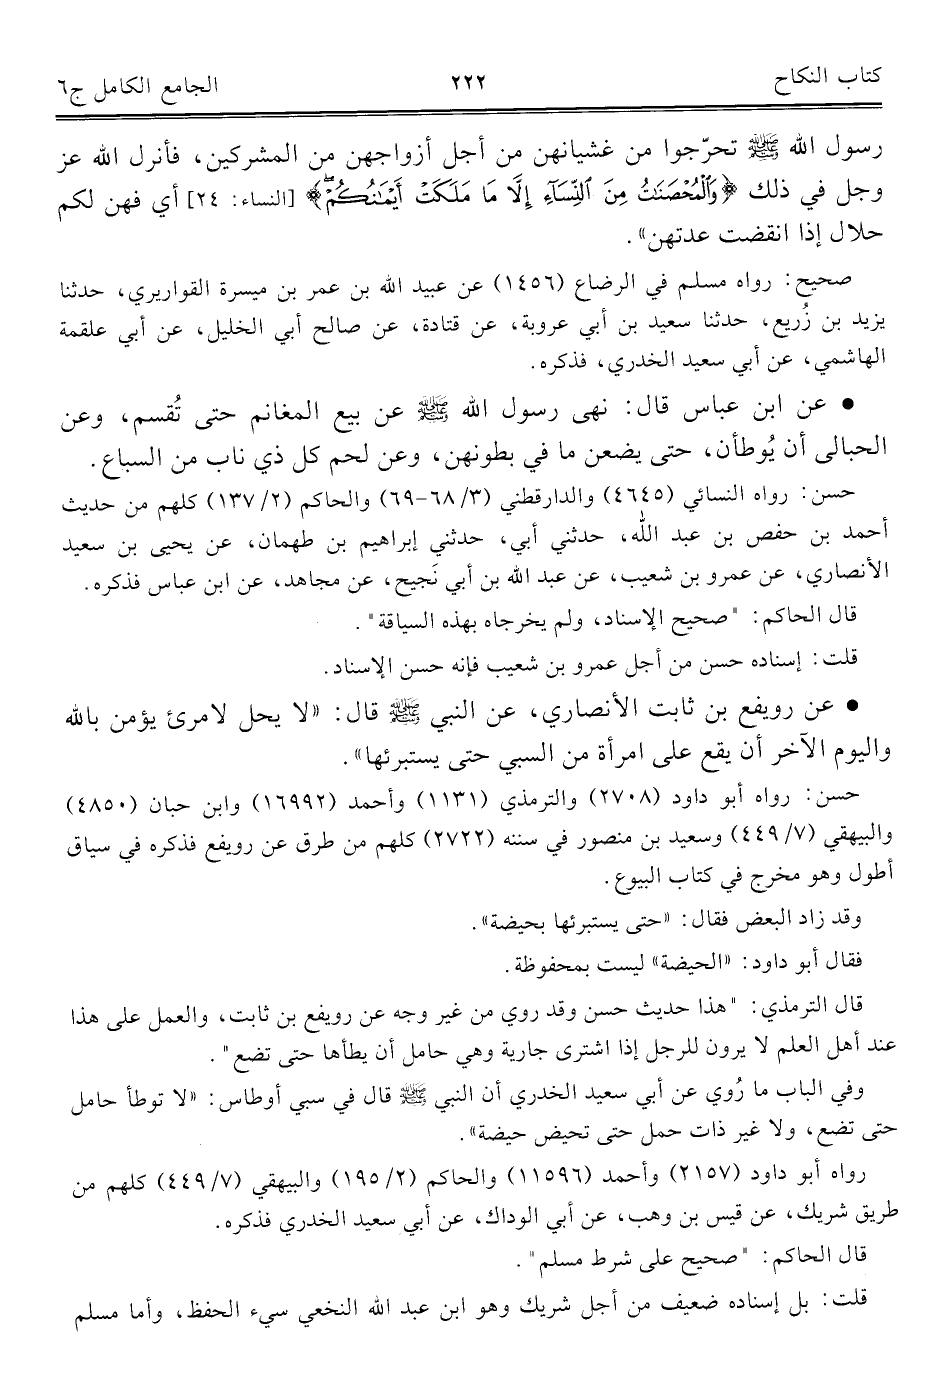 كتاب النكاح ٢٢٢ الجامع الكامل ج٦
رسول الله ﷺ تحرّجوا من غشيانهن من أجل أزواجهن من المشركين، فأنرل الله عز
وجل في ذلك ﴿وَٱلْمُحْصَنَٰتُ مِنَ ٱلنِّسَآءِ إِلَّا مَا مَلَكَتْ أَيْمَٰنُكُمْۖ﴾ [النساء: ٢٤] أي فهن لكم
حلال إذا انقضت عدتهن».
صحيح: رواه مسلم في الرضاع (١٤٥٦) عن عبيد الله بن عمر بن ميسرة القواريري، حدثنا
يزيد بن زُريع، حدثنا سعيد بن أبي عروبة، عن قتادة، عن صالح أبي الخليل، عن أبي علقمة
الهاشمي، عن أبي سعيد الخدري، فذكره.
● عن ابن عباس قال: نهى رسول الله ﷺ عن بيع المغانم حتى تُقسم، وعن
الحبالى أن يُوطأن، حتى يضعن ما في بطونهن، وعن لحم كل ذي ناب من السباع.
حسن: رواه النسائي (٤٦٤٥) والدارقطني (٣/ ٦٨-٦٩) والحاكم (٢/ ١٣٧) كلهم من حديث
أحمد بن حفص بن عبد الله، حدثني أبي، حدثني إبراهيم بن طهمان، عن يحيى بن سعيد
الأنصاري، عن عمرو بن شعيب، عن عبد الله بن أبي نَجيح، عن مجاهد، عن ابن عباس فذكره.
قال الحاكم: "صحيح الإسناد، ولم يخرجاه بهذه السياقة".
قلت: إسناده حسن من أجل عمرو بن شعيب فإنه حسن الإسناد.
● عن رويفع بن ثابت الأنصاري، عن النبي ﷺ قال: «لا يحل لامرئ يؤمن بالله
واليوم الآخر أن يقع على امرأة من السبي حتى يستبرئها».
حسن: رواه أبو داود (٢٧٠٨) والترمذي (١١٣١) وأحمد (١٦٩٩٢) وابن حبان (٤٨٥٠)
والبيهقي (٧/ ٤٤٩) وسعيد بن منصور في سننه (٢٧٢٢) كلهم من طرق عن رويفع فذكره في سياق
أطول وهو مخرج في كتاب البيوع.
وقد زاد البعض فقال: «حتى يستبرئها بحيضة».
فقال أبو داود: «الحيضة» ليست بمحفوظة.
قال الترمذي: "هذا حديث حسن وقد روي من غير وجه عن رويفع بن ثابت، والعمل على هذا
عند أهل العلم لا يرون للرجل إذا اشترى جارية وهي حامل أن يطأها حتى تضع".
وفي الباب ما رُوي عن أبي سعيد الخدري أن النبي ﷺ قال في سبي أوطاس: «لا توطأ حامل
حتى تضع، ولا غير ذات حمل حتى تحيض حيضة».
رواه أبو داود (٢١٥٧) وأحمد (١١٥٩٦) والحاكم (٢/ ١٩٥) والبيهقي (٧/ ٤٤٩) كلهم من
طريق شريك، عن قيس بن وهب، عن أبي الوداك، عن أبي سعيد الخدري فذكره.
قال الحاكم: "صحيح على شرط مسلم".
قلت: بل إسناده ضعيف من أجل شريك وهو ابن عبد الله النخعي سيء الحفظ، وأما مسلم